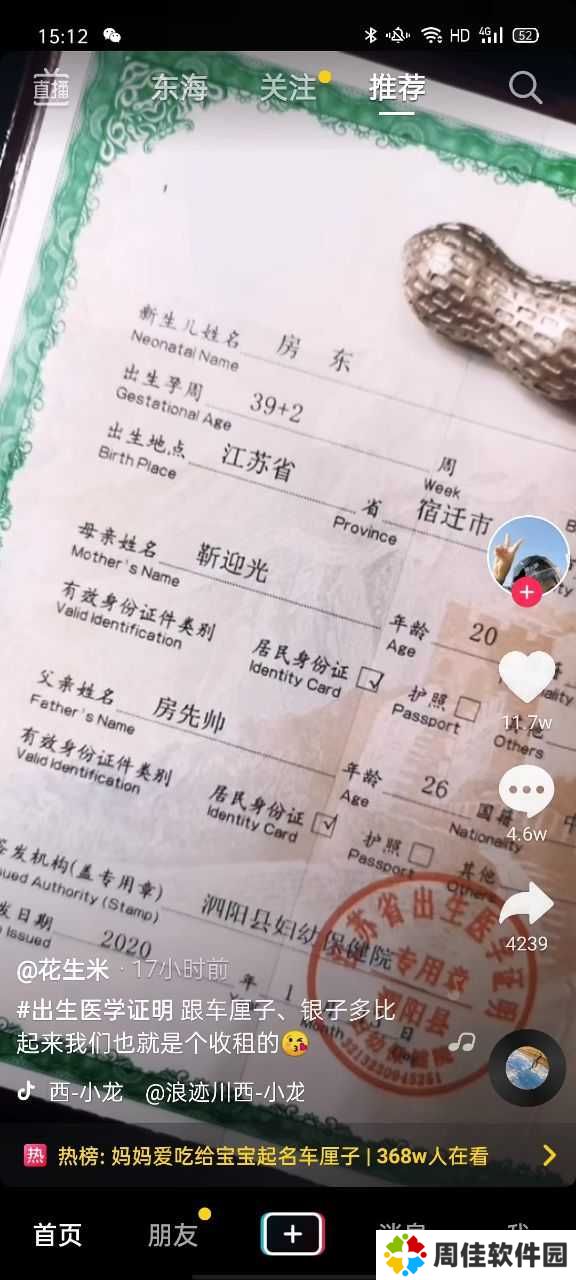 15:12
HD 4G 52
直播 东海 关注 推荐
新生儿姓名 房 东
Neonatal Name
出生孕周 39+2 周
Gestational Age Week
出生地点 江苏省 省 宿迁市
Birth Place Province
母亲姓名 靳迎光 年龄 20
Mother's Name Age
有效身份证件类别 居民身份证 护照
Valid Identification Identity Card Passport Others
父亲姓名 房先帅 年龄 26 国籍 中
Father's Name Age Nationality
有效身份证件类别 居民身份证 护照 其他
Valid Identification Identity Card Passport Others
签发机构(盖专用章) 泗阳县妇幼保健院
Issued Authority (Stamp)
发日期 2020 年 1
Issued Month
苏省出生医学证明
专用章
泗阳县
11.7w
4.6w
4239
@花生米 · 17小时前
#出生医学证明 跟车厘子、银子多比
起来我们也就是个收租的😘
西-小龙 @浪迹川西-小龙
热 热榜: 妈妈爱吃给宝宝起名车厘子 | 368w人在看
首页 朋友 消息 我
周佳软件园